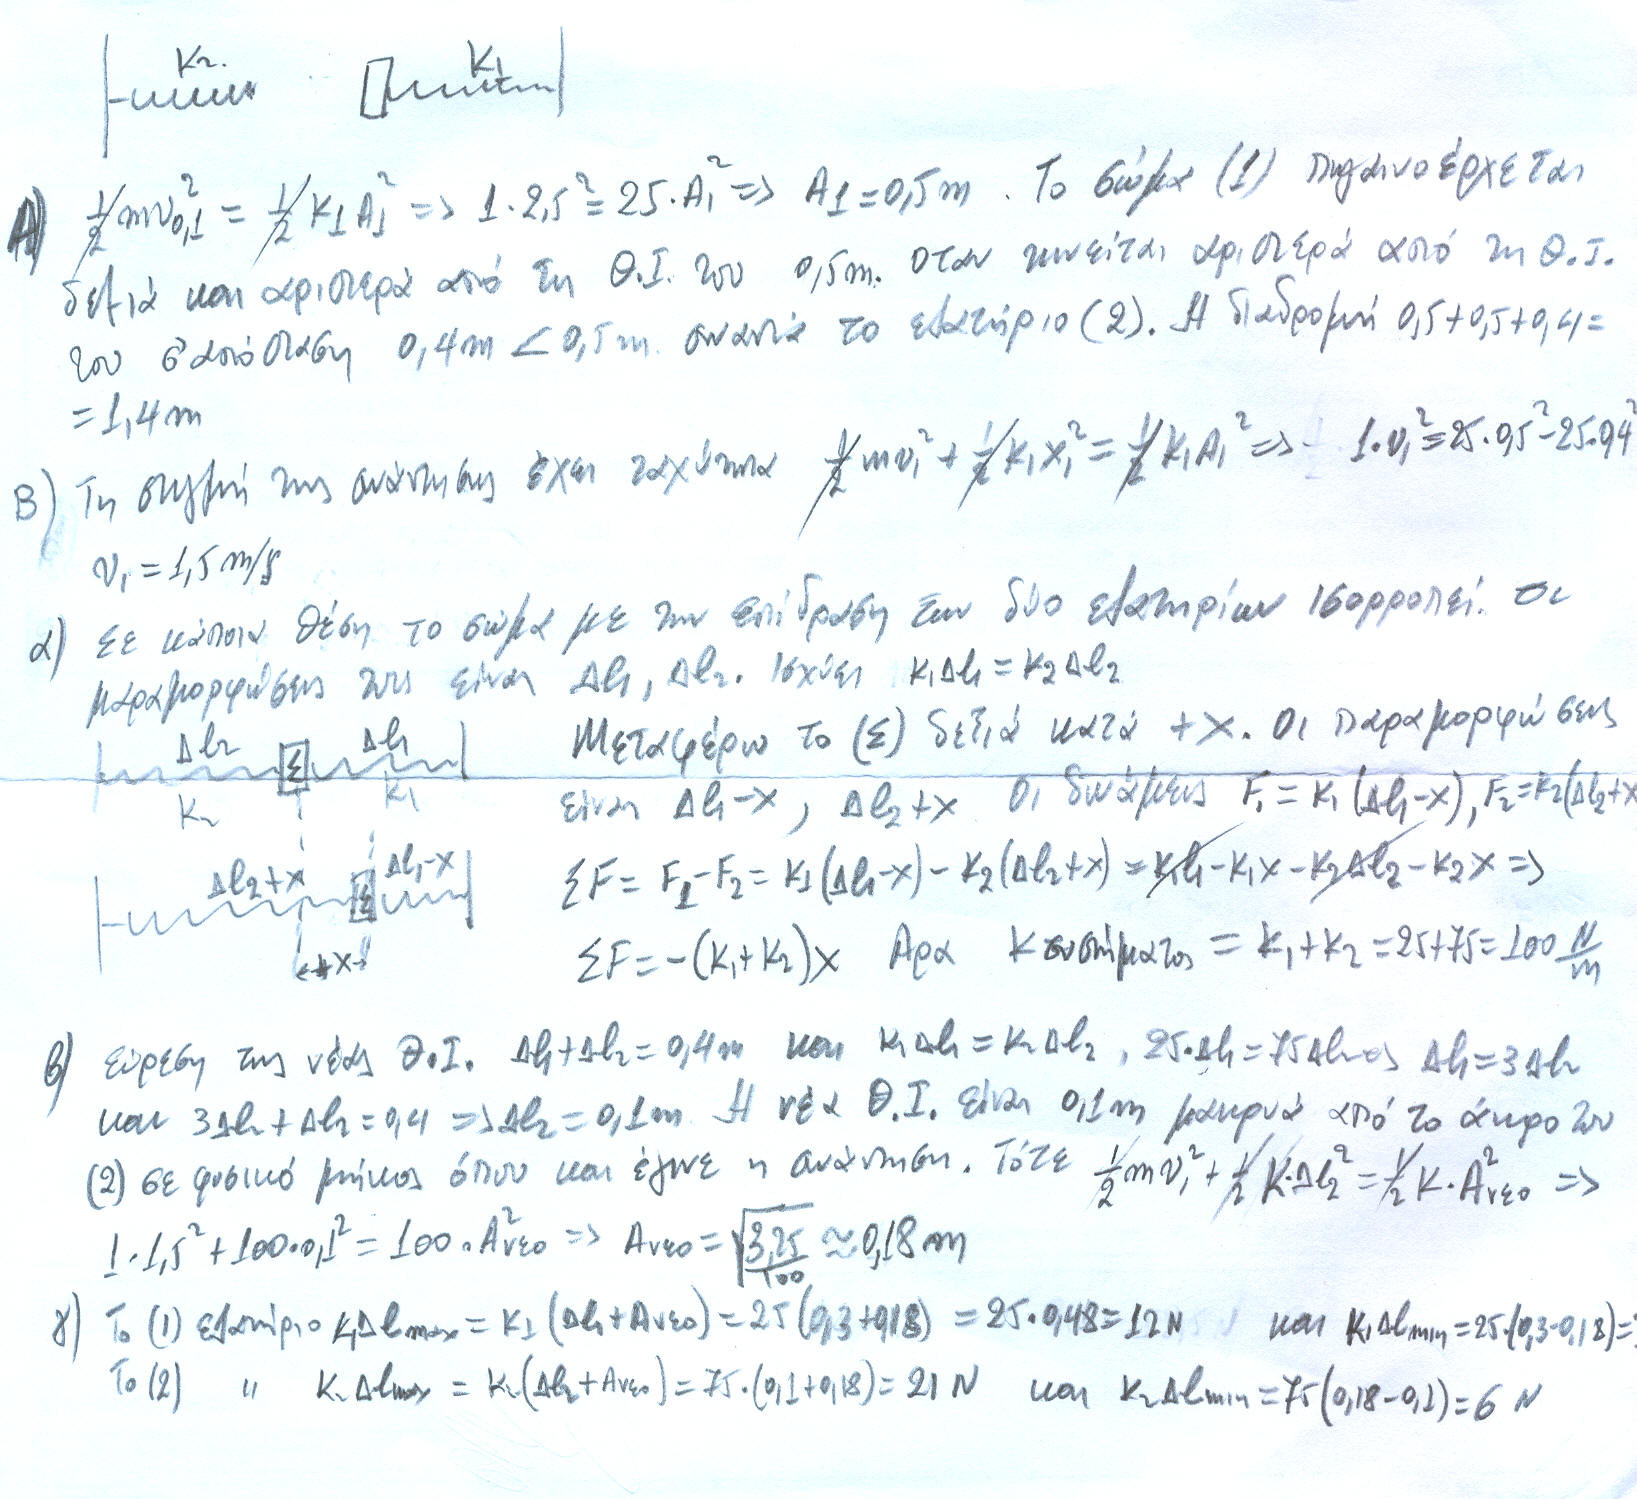 K₂ K₁
A) ½mυ₀,₁² = ½K₁A₁² => 1·2,5² = 25·A₁² => A1 = 0,5m. Το σώμα (1) πηγαινοέρχεται
δεξιά και αριστερά από τη Θ.Ι. του 0,5m. Όταν κινείται αριστερά από τη Θ.Ι.
του σ' απόσταση 0,4m < 0,5m. συναντά το ελατήριο (2). Η διαδρομή 0,5+0,5+0,4=
= 1,4m
B) Τη στιγμή της συνάντησης έχει ταχύτητα ½mυ₁² + ½K₁x₁² = ½K₁A₁² => 1·υ₁² = 25·0,5² - 25·0,4²
υ₁ = 1,5 m/s
α) Σε κάποια θέση το σώμα με την επίδραση των δύο ελατηρίων ισορροπεί. Οι
παραμορφώσεις τους είναι Δl₁, Δl₂. Ισχύει K₁Δl₁ = K₂Δl₂
Δl₂ Σ Δl₁
K₂ K₁
Μεταφέρω το (Σ) δεξιά κατά +x. Οι παραμορφώσεις
είναι Δl₁-x, Δl₂+x Οι δυνάμεις F₁ = K₁(Δl₁-x), F₂=K₂(Δl₂+x
Δl₂+x Σ Δl₁-x
+x
ΣF = F₁-F₂ = K₁(Δl₁-x) - K₂(Δl₂+x) = K₁Δl₁-K₁x-K₂Δl₂-K₂x =>
ΣF = -(K₁+K₂)x Άρα K συστήματος = K₁+K₂ = 25+75 = 100 N/m
β) εύρεση της νέας Θ.Ι. Δl₁+Δl₂ = 0,4m και K₁Δl₁ = K₂Δl₂, 25·Δl₁ = 75Δl₂ => Δl₁ = 3Δl₂
και 3Δl₂+Δl₂ = 0,4 => Δl₂ = 0,1m. Η νέα Θ.Ι. είναι 0,1m μακρυά από το άκρο του
(2) σε φυσικό μήκος όπου και έγινε η συνάντηση. Τότε ½mυ₁² + ½K·Δl₂² = ½K·Aνεο² =>
1·1,5² + 100·0,1² = 100·Aνεο² => Aνεο = √(3,25/100) ≈ 0,18m
γ) Το (1) ελατήριο K₁Δlmax = K1(Δl₁+Aνεο) = 25(0,3+0,18) = 25·0,48 = 12N και K₁Δlmin = 25·(0,3-0,18)=
Το (2) " K₂Δlmax = K₂(Δl₂+Aνεο) = 75·(0,1+0,18) = 21N και K₂Δlmin = 75(0,18-0,1) = 6 N